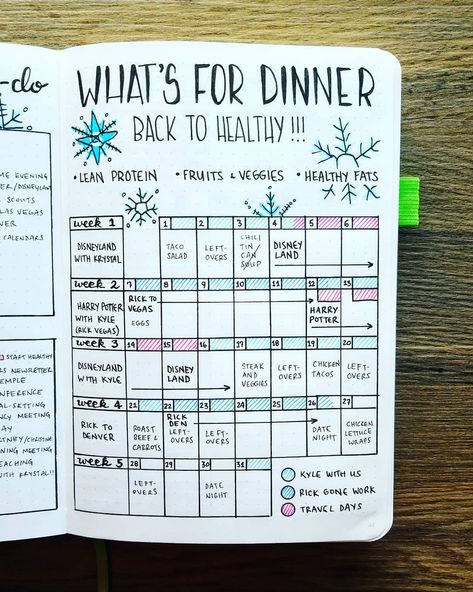 -do
ME EVENING
ER/DISNEYLAND
SCOUTS
LAS VEGAS
VER
CALENDARS
START HEALTHY
RS NEWSLETTER
EMPLE
NFERENCE
AL-SETTING
NCY MEETING
AY
RTNEY/CHRISTINE
NING MEETING
EACHING
WITH KRYSTAL!!
WHAT'S FOR DINNER
BACK TO HEALTHY!!!
• LEAN PROTEIN • FRUITS & VEGGIES • HEALTHY FATS
week 1 1 2 3 4 5 6
DISNEYLAND WITH KRYSTAL
TACO SALAD
LEFT-OVERS
CHILI TIN CAN SOUP
DISNEY LAND
week 2 7 8 9 10 11 12 13
HARRY POTTER WITH KYLE (RICK VEGAS)
RICK TO VEGAS
EGGS
HARRY POTTER
week 3 14 15 16 17 18 19 20
DISNEYLAND WITH KYLE
DISNEY LAND
STEAK AND VEGGIES
LEFT-OVERS
CHICKEN TACOS
LEFT-OVERS
week 4 21 22 23 24 25 26 27
RICK TO DENVER
ROAST BEEF & CARROTS
RICK DEN
LEFT-OVERS
LEFT-OVERS
DATE NIGHT
CHICKEN LETTUCE WRAPS
week 5 28 29 30 31
LEFT-OVERS
DATE NIGHT
KYLE WITH US
RICK GONE WORK
TRAVEL DAYS